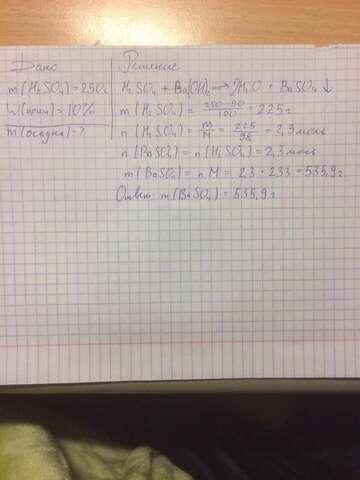 Дано
m(H₂SO₄)=250г
W(прим)=10%
m(осадка)-?
Решение
H₂SO₄ + Ba(OH)₂ → 2H₂O + BaSO₄ ↓
m(H₂SO₄) = 250·90/100 = 225г
n(H₂SO₄) = m/M = 225/98 = 2,3 моль
n(BaSO₄) = n(H₂SO₄) = 2,3 моль
m(BaSO₄) = n M = 2,3 · 233 = 535,9 г
Ответ: m(BaSO₄) = 535,9 г